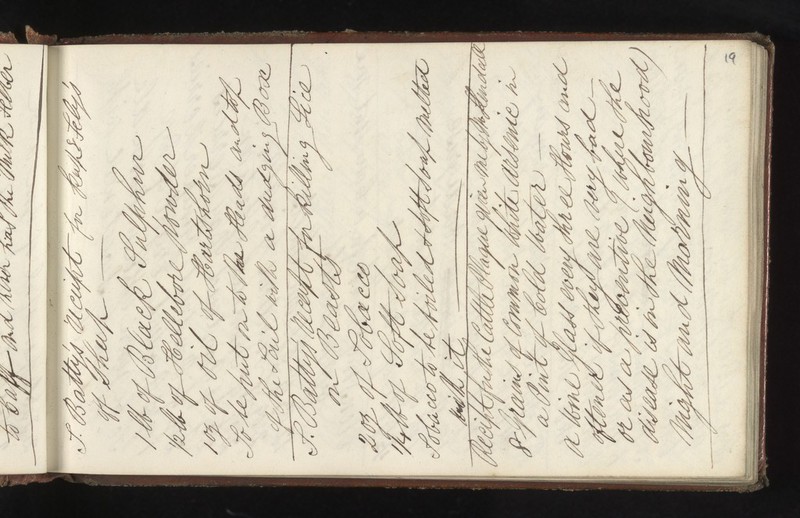 to Calf and never had the Milk Fever
19
S. Batty's Receipt for
of Sheep —
1 lb of Black Sulphur
½ lb of Hellebore Powder
1 oz of Oil of Hartshorn
To be put on to the Heads and top
of the Tail with a dredging Box
S. Batty's Receipt for killing Lice
on Beasts
2 oz of Tobacco
¼ lb of Soft Soap
Tobacco to be boiled & Soft Soap melted
with it
Receipt for the Cattle Plague given me by
8 grains of Common White Arsenic in
a Pint of Cold Water —
a Wine Glass every three Hours and
oftener if they are very bad
or as a preventive (when the
disease is in the Neighbourhood)
Night and Morning —